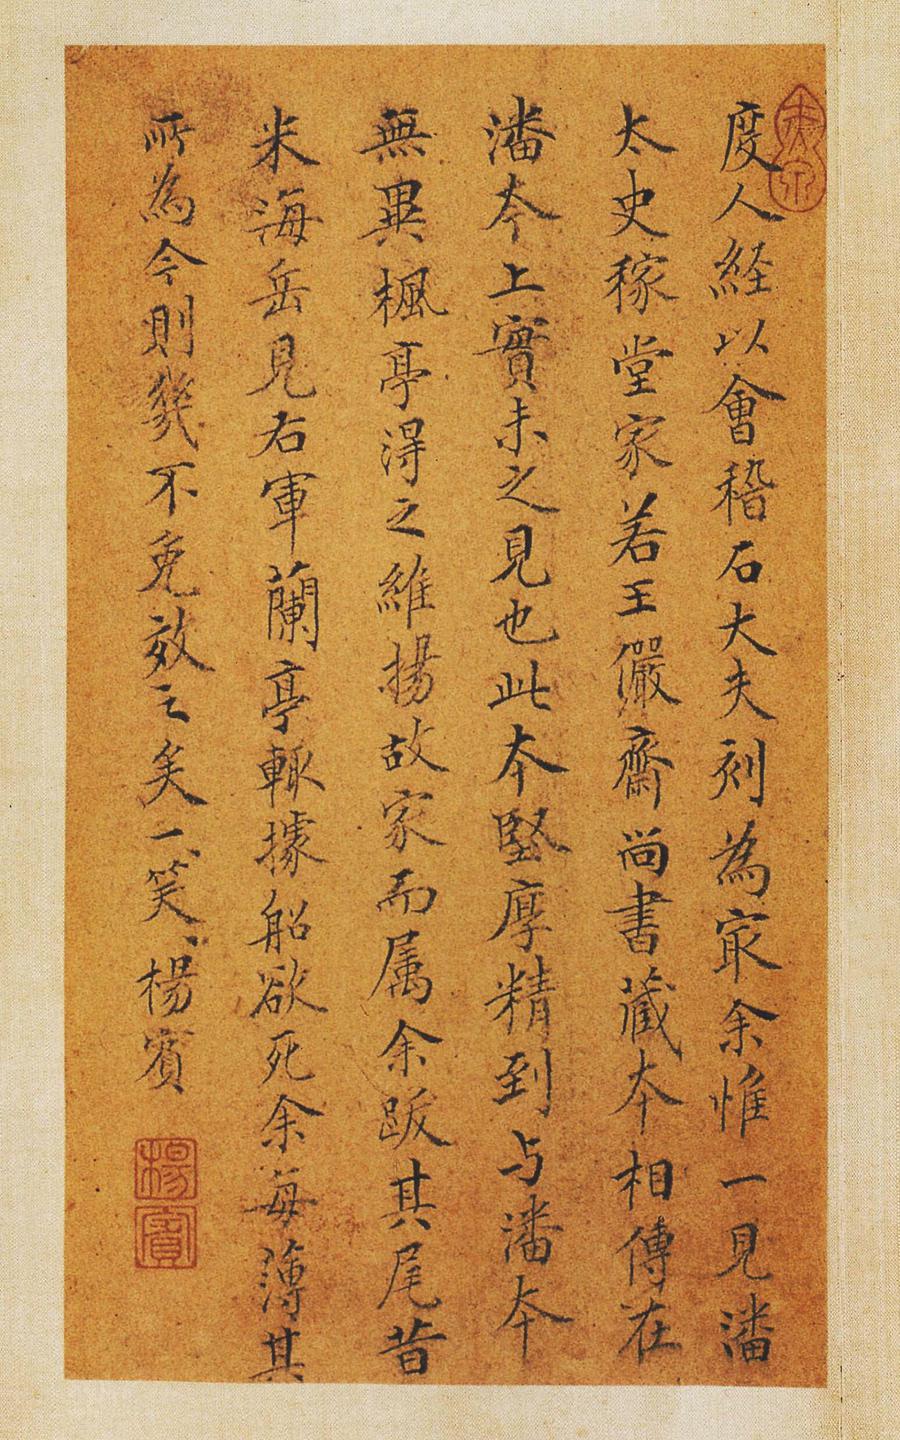 度人経以會稽石大夫刻為㝡余惟一見潘
太史稼堂家若王儼齋尚書藏本相傳在
潘本上實未之見也此本堅厚精到与潘本
無異楓亭得之維揚故家而属余跋其尾昔
米海岳見右軍蘭亭輙據船欲死余每薄其
所為今則幾不免效之矣一笑、楊賓
楊
賓